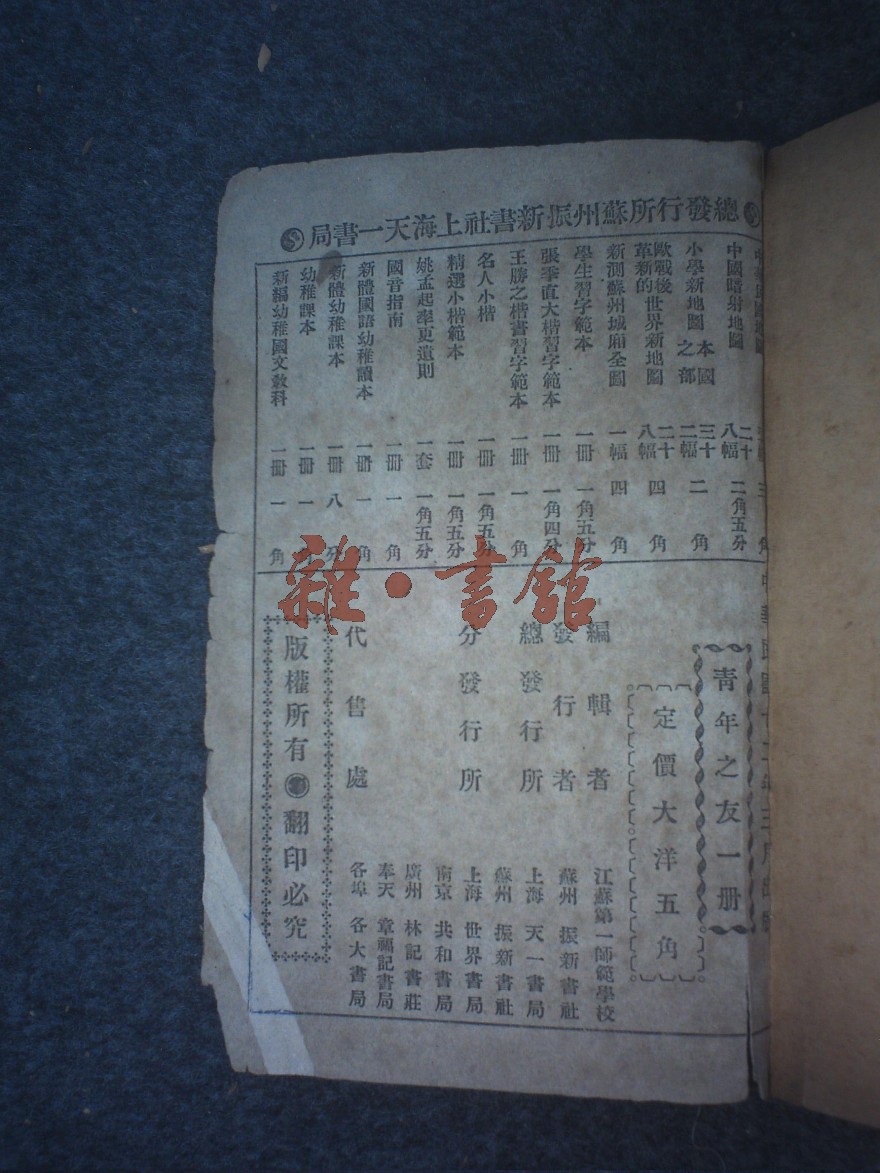 總發行所蘇州振新書社上海天一書局
中國暗射地圖 二十八幅 二角五分
小學新地圖 本國之部 三十二幅 二角
歐戰後革新的世界新地圖 二十八幅 四角
新測蘇州城廂全圖 一幅 四角
學生習字範本 一冊 一角五分
張季直大楷習字範本 一冊 一角四分
王勝之楷書習字範本 一冊 一角
名人小楷 一冊 一角五分
精選小楷範本 一冊 一角五分
姚孟起率更遺則 一套 一角五分
國音指南 一冊 一角
新體國語幼稚讀本 一冊 一角
新體幼稚課本 一冊 八分
幼稚課本 一冊 一角
新編幼稚國文教科 一冊 一角
青年之友一册
定價大洋五角
編輯者 江蘇第一師範學校
發行者 蘇州 振新書社
總發行所 上海 天一書局
蘇州 振新書社
分發行所 上海 世界書局
南京 共和書局
廣州 林記書莊
奉天 章福記書局
代售處 各埠 各大書局
版權所有 翻印必究
雜·書館